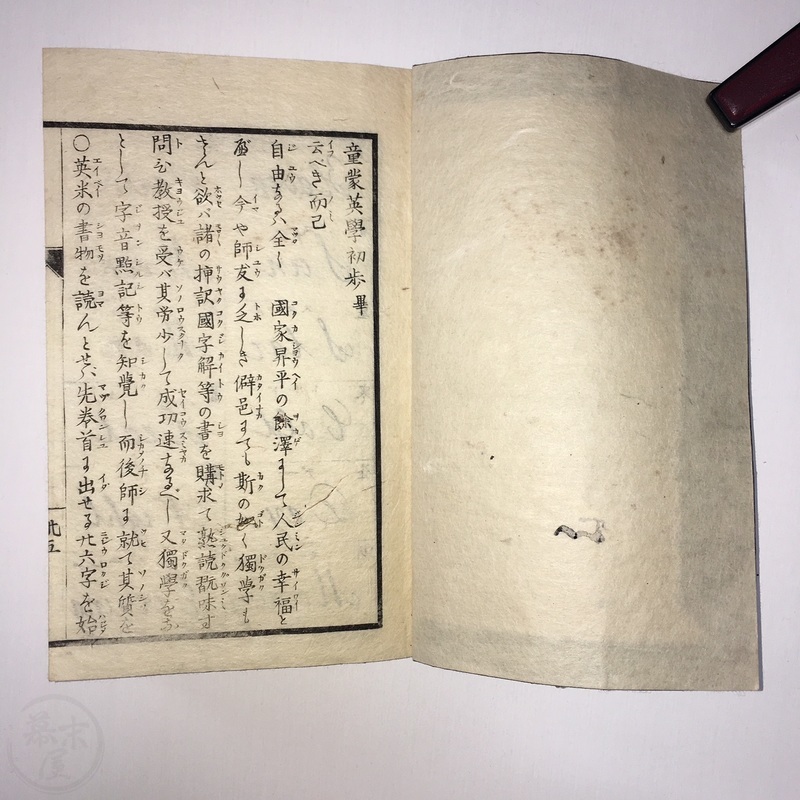 ○英米の書物を読んとせバ先巻首に出せる廿六字を始
として字音點記等を知覺し而後師に就て其質を
問ひ教授を受バ其労少して成功速なるべし又獨學をな
さんと欲バ諸の挿訳國字解等の書を購求て熟読翫味す
べし今や師友に乏しき僻邑にても斯の如く獨學も
自由なるハ全く 國家昇平の餘澤にして人民の幸福と
云べき而已
童蒙英學初歩 畢
廿五
幕末屋